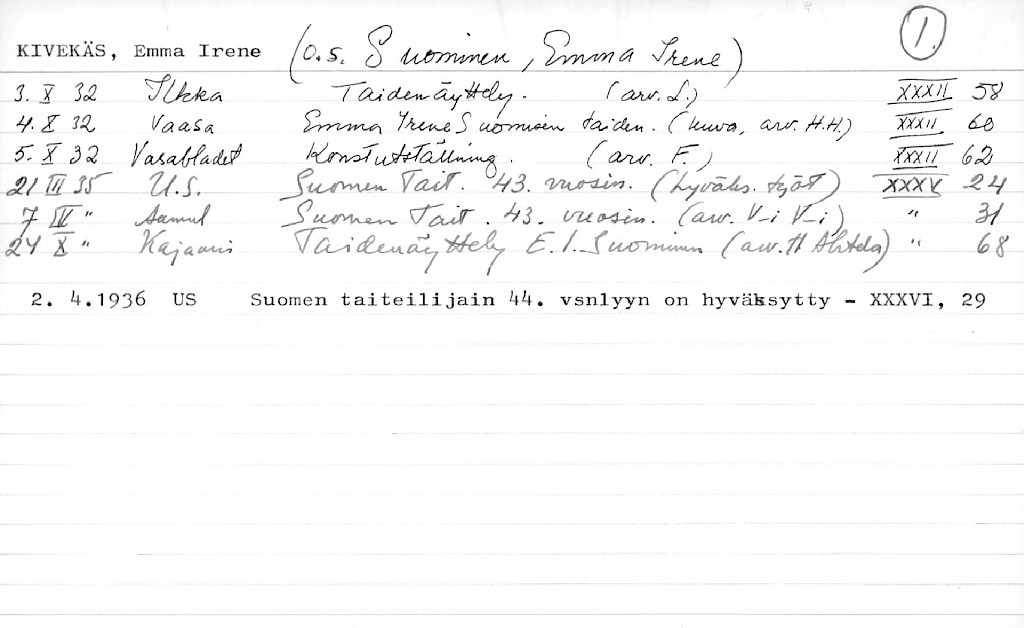 KIVEKÄS, Emma Irene (o.s. Suominen, Emma Irene) 1.
3. X 32 Ilkka Taidenäyttely. (arv. L.) XXXII 58
4. X 32 Vaasa Emma Irene Suomisen taiden. (kuva, arv. H.H.) XXXII 60
5. X 32 Vasabladet Konstutställning. (arv. F.) XXXII 62
21 III 35 U.S. Suomen Tait. 43. vuosin. (hyväks. työt) XXXV 24
7 IV " Aamul Suomen Tait. 43. vuosin. (arv. V-i V-i) " 31
24 X " Kajaani Taidenäyttely E. I. Suominen (arv. H Ahtela) " 68
2. 4.1936 US Suomen taiteilijain 44. vsnlyyn on hyväksytty - XXXVI, 29